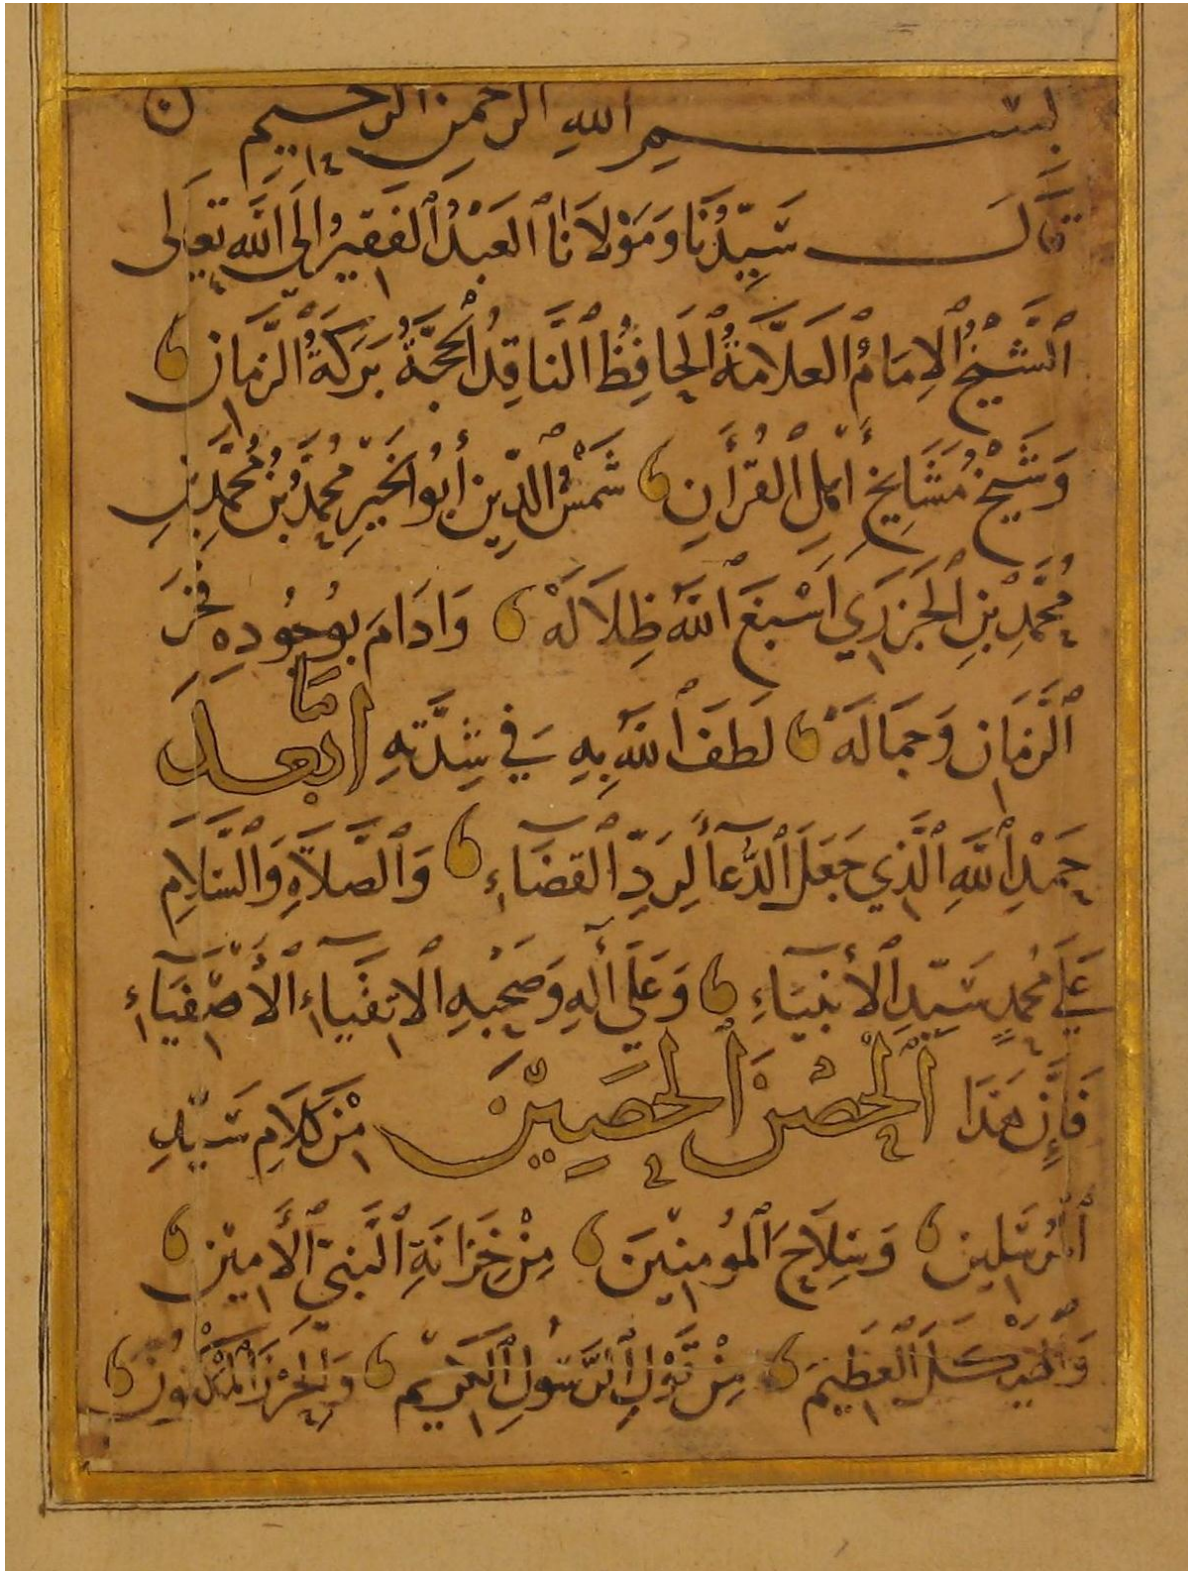 بِسْمِ اللهِ الرَّحْمٰنِ الرَّحِيمِ
قَالَ سَيِّدُنَا وَمَوْلَانَا الْعَبْدُ الْفَقِيرُ إِلَى اللهِ تَعَالَى
الشَّيْخُ الْإِمَامُ الْعَلَّامَةُ الْحَافِظُ النَّاقِدُ الْحُجَّةُ بَرَكَةُ الزَّمَانِ
وَشَيْخُ مَشَايِخِ أَهْلِ الْقُرْآنِ شَمْسُ الدِّينِ أَبُو الْخَيْرِ مُحَمَّدُ بْنُ مُحَمَّدِ بْنِ
مُحَمَّدِ بْنِ الْجَزَرِي أَسْبَغَ اللهُ ظِلَالَهُ وَأَدَامَ بِوُجُودِهِ فَخْرَ
الزَّمَانِ وَجَمَالَهُ لَطَفَ اللهُ بِهِ فِي شِدَّتِهِ أَمَّا بَعْدَ
حَمْدِ اللهِ الَّذِي جَعَلَ الدُّعَاءَ لِرَدِّ الْقَضَاءِ وَالصَّلَاةِ وَالسَّلَامِ
عَلَى مُحَمَّدٍ سَيِّدِ الْأَنْبِيَاءِ وَعَلَى آلِهِ وَصَحْبِهِ الْأَتْقِيَاءِ الْأَصْفِيَاءِ
فَإِنَّ هَذَا الْحِصْنَ الْحَصِينَ مِنْ كَلَامِ سَيِّدِ
الْمُرْسَلِينَ وَسِلَاحَ الْمُؤْمِنِينَ مِنْ خَزَانَةِ النَّبِيِّ الْأَمِينِ
وَالْهَيْكَلَ الْعَظِيمَ مِنْ قَوْلِ الرَّسُولِ الْكَرِيمِ وَالْحِرْزَ الْمَكْنُونَ